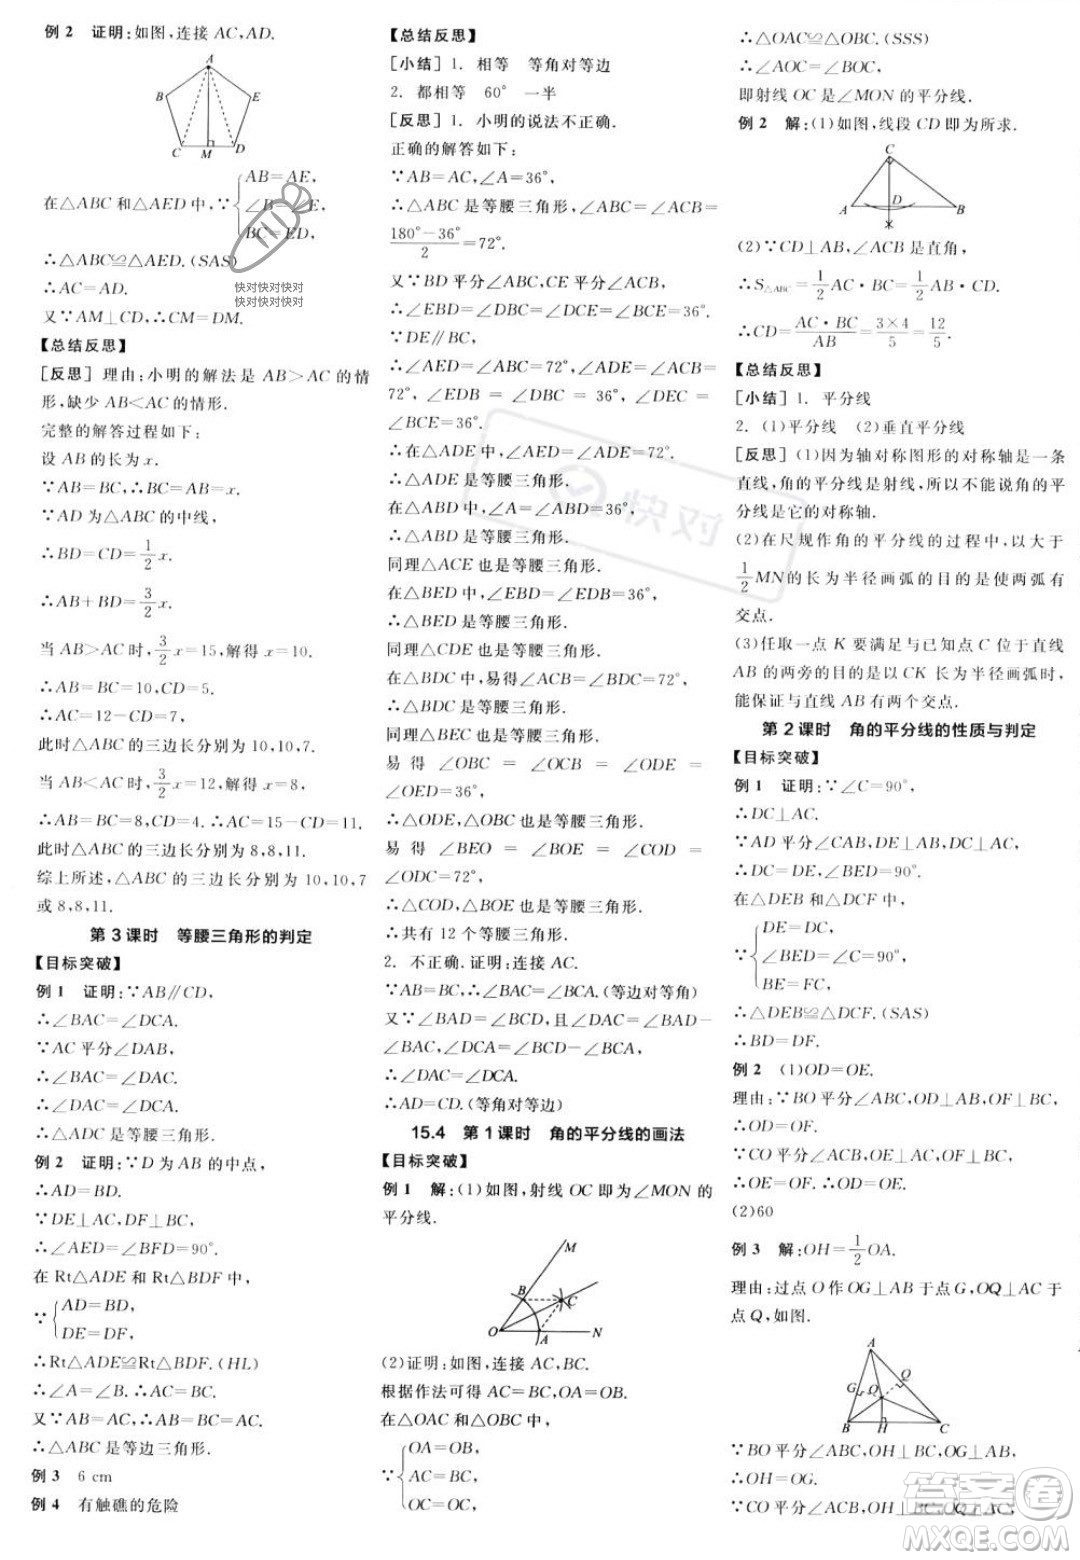 例 2　证明:如图,连接 AC,AD.
A
B
E
C
M
D
在△ABC 和△AED 中,∵
AB=AE,
∠B=∠E,
BC=ED,
∴△ABC≌△AED.(SAS)
∴AC=AD.
又∵AM⊥CD,∴CM=DM.
【总结反思】
[反思] 理由:小明的解法是 AB>AC 的情
形,缺少 AB<AC 的情形.
完整的解答过程如下:
设 AB 的长为 x.
∵AB=BC,∴BC=AB=x.
∵AD 为△ABC 的中线,
∴BD=CD=1/2 x.
∴AB+BD=3/2 x.
当 AB>AC 时,3/2 x=15,解得 x=10.
∴AB=BC=10,CD=5.
∴AC=12-CD=7,
此时△ABC 的三边长分别为 10,10,7.
当 AB<AC 时,3/2 x=12,解得 x=8,
∴AB=BC=8,CD=4.∴AC=15-CD=11.
此时△ABC 的三边长分别为 8,8,11.
综上所述,△ABC 的三边长分别为 10,10,7
或 8,8,11.
第 3 课时　等腰三角形的判定
【目标突破】
例 1　证明:∵AB∥CD,
∴∠BAC=∠DCA.
∵AC 平分∠DAB,
∴∠BAC=∠DAC.
∴∠DAC=∠DCA.
∴△ADC 是等腰三角形.
例 2　证明:∵D 为 AB 的中点,
∴AD=BD.
∵DE⊥AC,DF⊥BC,
∴∠AED=∠BFD=90°.
在 Rt△ADE 和 Rt△BDF 中,
∵
AD=BD,
DE=DF,
∴Rt△ADE≌Rt△BDF.(HL)
∴∠A=∠B.∴AC=BC.
又∵AB=AC,∴AB=BC=AC.
∴△ABC 是等边三角形.
例 3　6 cm
例 4　有触礁的危险
快对快对快对
快对快对快对
【总结反思】
[小结] 1. 相等　等角对等边
2. 都相等　60°　一半
[反思] 1. 小明的说法不正确.
正确的解答如下:
∵AB=AC,∠A=36°,
∴△ABC 是等腰三角形,∠ABC=∠ACB=
(180°-36°)/2=72°.
又∵BD 平分∠ABC,CE 平分∠ACB,
∴∠EBD=∠DBC=∠DCE=∠BCE=36°.
∵DE∥BC,
∴∠AED=∠ABC=72°,∠ADE=∠ACB=
72°,∠EDB=∠DBC=36°,∠DEC=
∠BCE=36°.
∴在△ADE 中,∠AED=∠ADE=72°,
∴AD=AE,△ADE 是等腰三角形.
在△ABD 中,∠A=∠ABD=36°,
∴AD=BD,△ABD 是等腰三角形.
同理△ACE 是等腰三角形.
在△BED 中,∠EBD=∠EDB=36°,
∴△BED 是等腰三角形.
同理△CDE 是等腰三角形.
在△BDC 中,∠BDC=∠BCD=72°,
∴△BDC 是等腰三角形.
同理△BEC 也是等腰三角形.
易得∠OBC=∠OCB=∠ODE=
∠OED=36°,
∴△ODE,△OBC 也是等腰三角形.
易得∠BEO=∠BOE=∠COD=
∠CDO=72°,
∴△COD,△BOE 也是等腰三角形.
∴共有 12 个等腰三角形.
2. 不正确.证明:连接 AC.
∵AB=BC,∴∠BAC=∠BCA.(等边对等角)
又∵∠BAD=∠BCD,且∠DAC=∠BAD-
∠BAC,∠DCA=∠BCD-∠BCA,
∴∠DAC=∠DCA.
∴AD=CD.(等角对等边)
15.4　第 1 课时　角的平分线的画法
【目标突破】
例 1　解:(1)如图,射线 OC 即为∠MON 的
平分线.
M
B
C
O
A
N
(2)证明:如图,连接 AC,BC.
根据作法可得 AC=BC,OA=OB.
在△OAC 和△OBC 中,
∵
OA=OB,
AC=BC,
OC=OC,
∴△OAC≌△OBC.(SSS)
∴∠AOC=∠BOC,
即射线 OC 是∠MON 的平分线.
例 2　解:(1)如图,线段 CD 即为所求.
C
A
D
B
(2)∵CD⊥AB,∠ACB 是直角,
∴S△ABC=1/2 AC·BC=1/2 AB·CD.
∴CD=AC·BC/AB=3×4/5=12/5.
【总结反思】
[小结] 1. 平分线
2. (1)平分线　(2)垂直平分线
[反思] (1)因为轴对称图形的对称轴是一条
直线,角的平分线是射线,所以不能说角的平
分线是它的对称轴.
(2)在尺规作角的平分线的过程中,以大于
1/2 MN 的长为半径画弧的目的是使两弧有
交点.
(3)任取一点 K 要满足与已知点 C 位于直线
AB 的两旁的目的是以 CK 长为半径画弧时,
能保证与直线 AB 有两个交点.
第 2 课时　角的平分线的性质与判定
【目标突破】
例 1　证明:∵∠C=90°,
∴DC⊥AC.
∵AD 平分∠CAB,DE⊥AB,
∴DC=DE,∠BED=90°.
在△DEB 和△DCF 中,
∵
DE=DC,
∠BED=∠C=90°,
BE=FC,
∴△DEB≌△DCF.(SAS)
∴BD=DF.
例 2　(1)OD=OE.
理由:∵BO 平分∠ABC,OD⊥AB,OF⊥BC,
∴OD=OF.
∵CO 平分∠ACB,OE⊥AC,OF⊥BC,
∴OE=OF.∴OD=OE.
(2)60
例 3　解:OH=1/2 OA.
理由:过点 O 作 OG⊥AB 于点 G,OQ⊥AC 于
点 Q,如图.
A
G
O
Q
B
H
C
∵BO 平分∠ABC,OH⊥BC,OG⊥AB,
∴OH=OG.
∵CO 平分∠ACB,OH⊥BC,OQ⊥AC,
快对
答案圈
MXQE.COM